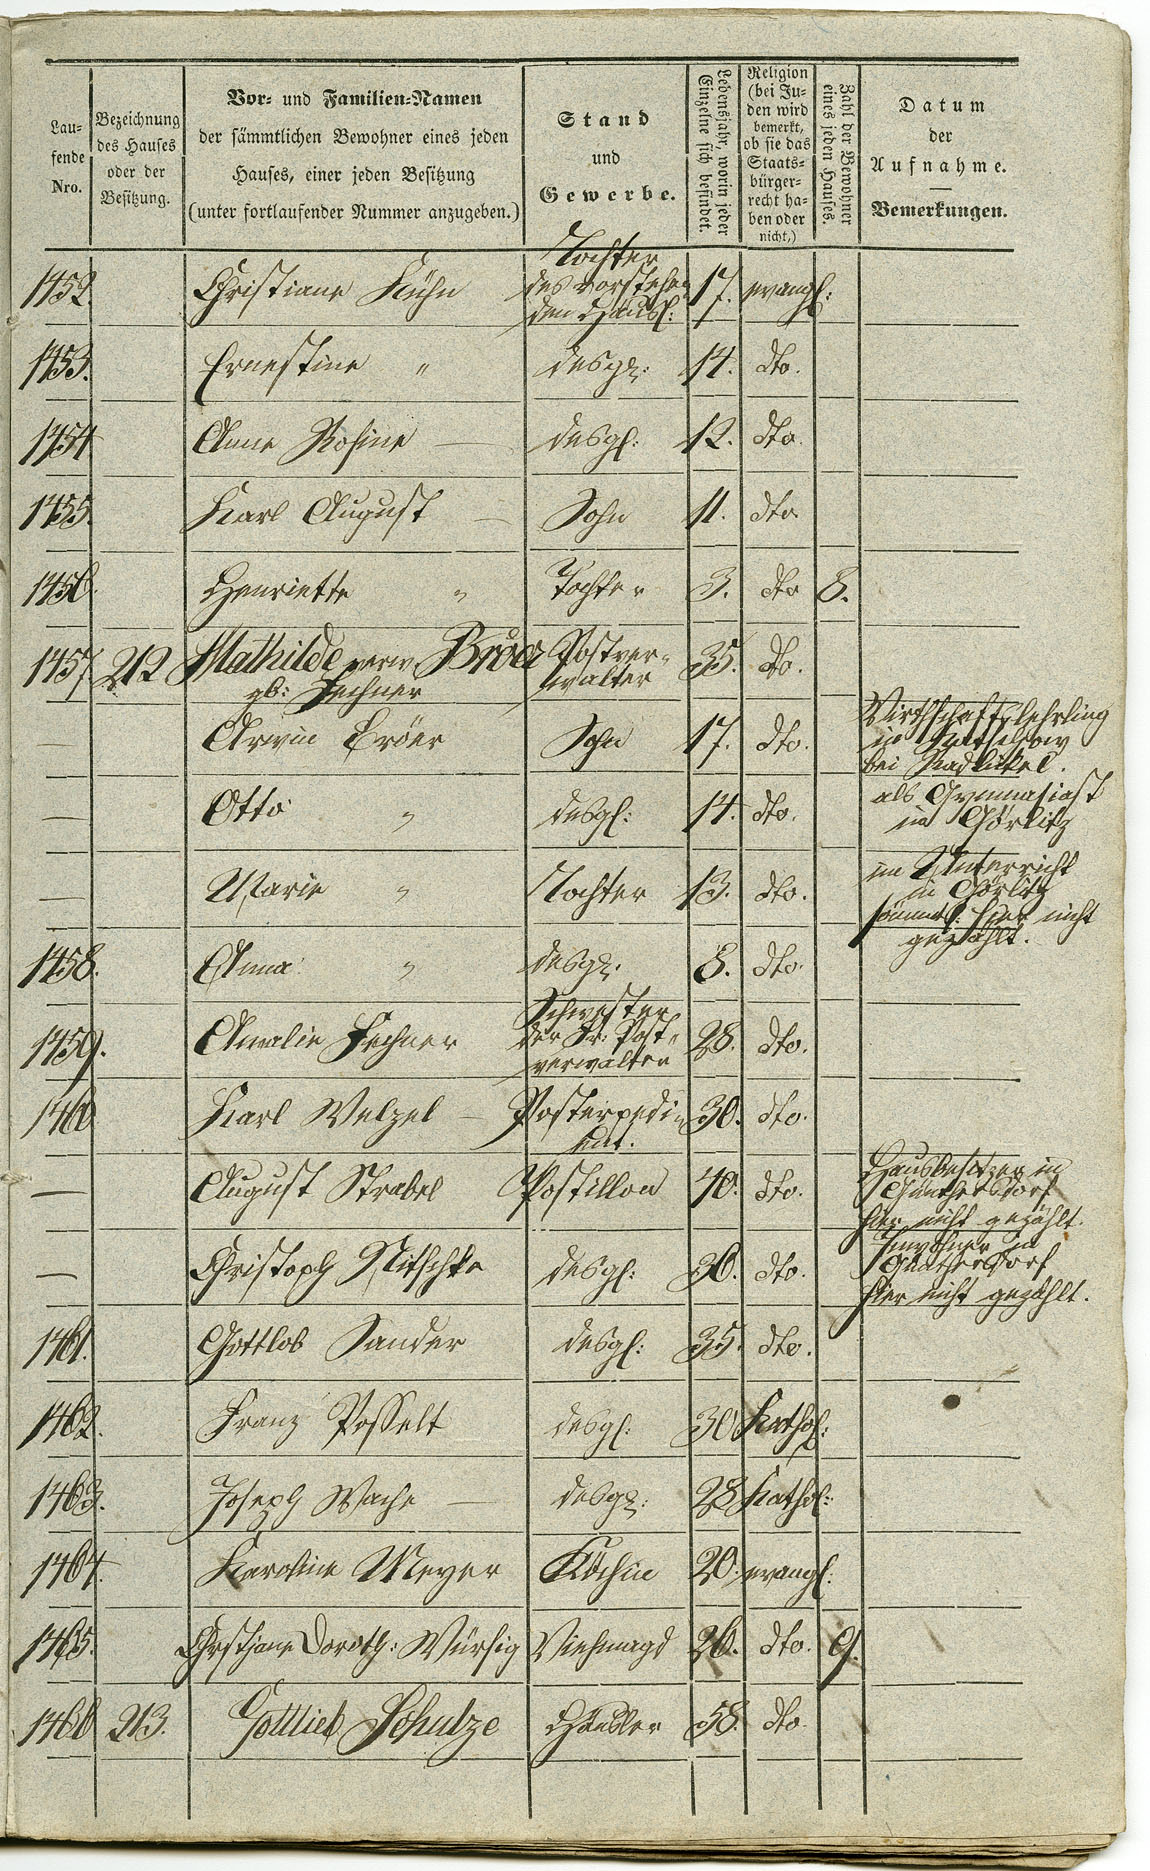 Lau-
fende
Nro.
Bezeichnung
des Hauses
oder der
Besitzung.
Vor- und Familien-Namen
der sämmtlichen Bewohner eines jeden
Hauses, einer jeden Besitzung
(unter fortlaufender Nummer anzugeben.)
Stand
und
Gewerbe.
Lebensjahr, worin jeder
Einzelne sich befindet.
Religion
(bei Ju-
den wird
bemerkt,
ob sie das
Staats-
bürger-
recht ha-
ben oder
nicht,)
Zahl der Bewohner
eines jeden Hauses.
Datum
der
Aufnahme.
Bemerkungen.
Tochter
des vorstehen
den Häusl:
1452. Christiane Kühn 17. evangl:
1453. Ernestine " desgl: 14. dto.
1454 Anne Rosine — desgl: 12. dto.
1455. Karl August — Sohn 11. dto.
1456. Henriette " Tochter 3. dto 8.
1457. 212 Mathilde verw. Bröer Postver-
gb: Fechner walter 35. dto.
— Arwin Bröer Sohn 17. dto. Wirthschaftslehrling
in
bei
— Otto " desgl: 14. dto. als Gymnasiast
in Görlitz
— Marie " Tochter 13. dto. im Unterricht
in Görlitz
sämmtl: hier nicht
gezählt.
1458. Anna " desgl. 8. dto.
Schwester
der Fr. Post-
verwalter
1459. Amalie Fechner 28. dto.
1460 Karl Welzel — Postexpedi-
ent. 30. dto.
— August Strabel Postillon 40. dto. Hausbesitzer in
Günthersdorf
hier nicht gezählt.
— Christoph Nitschke desgl: 36. dto. Inwohner in
Günthersdorf
hier nicht gezählt.
1461. Gottlob Sander desgl: 35. dto.
1462. Franz Posselt desgl: 30 Kathol:
1463. Joseph Wache — desgl: 28 Kathol:
1464. Karoline Meyer Köchin 20. evangl:
1465. Chrstjane Doroth: Würfig Viehmagd 26. dto. 9.
1466 213. Gottlieb Schulze Häusler 58. dto.